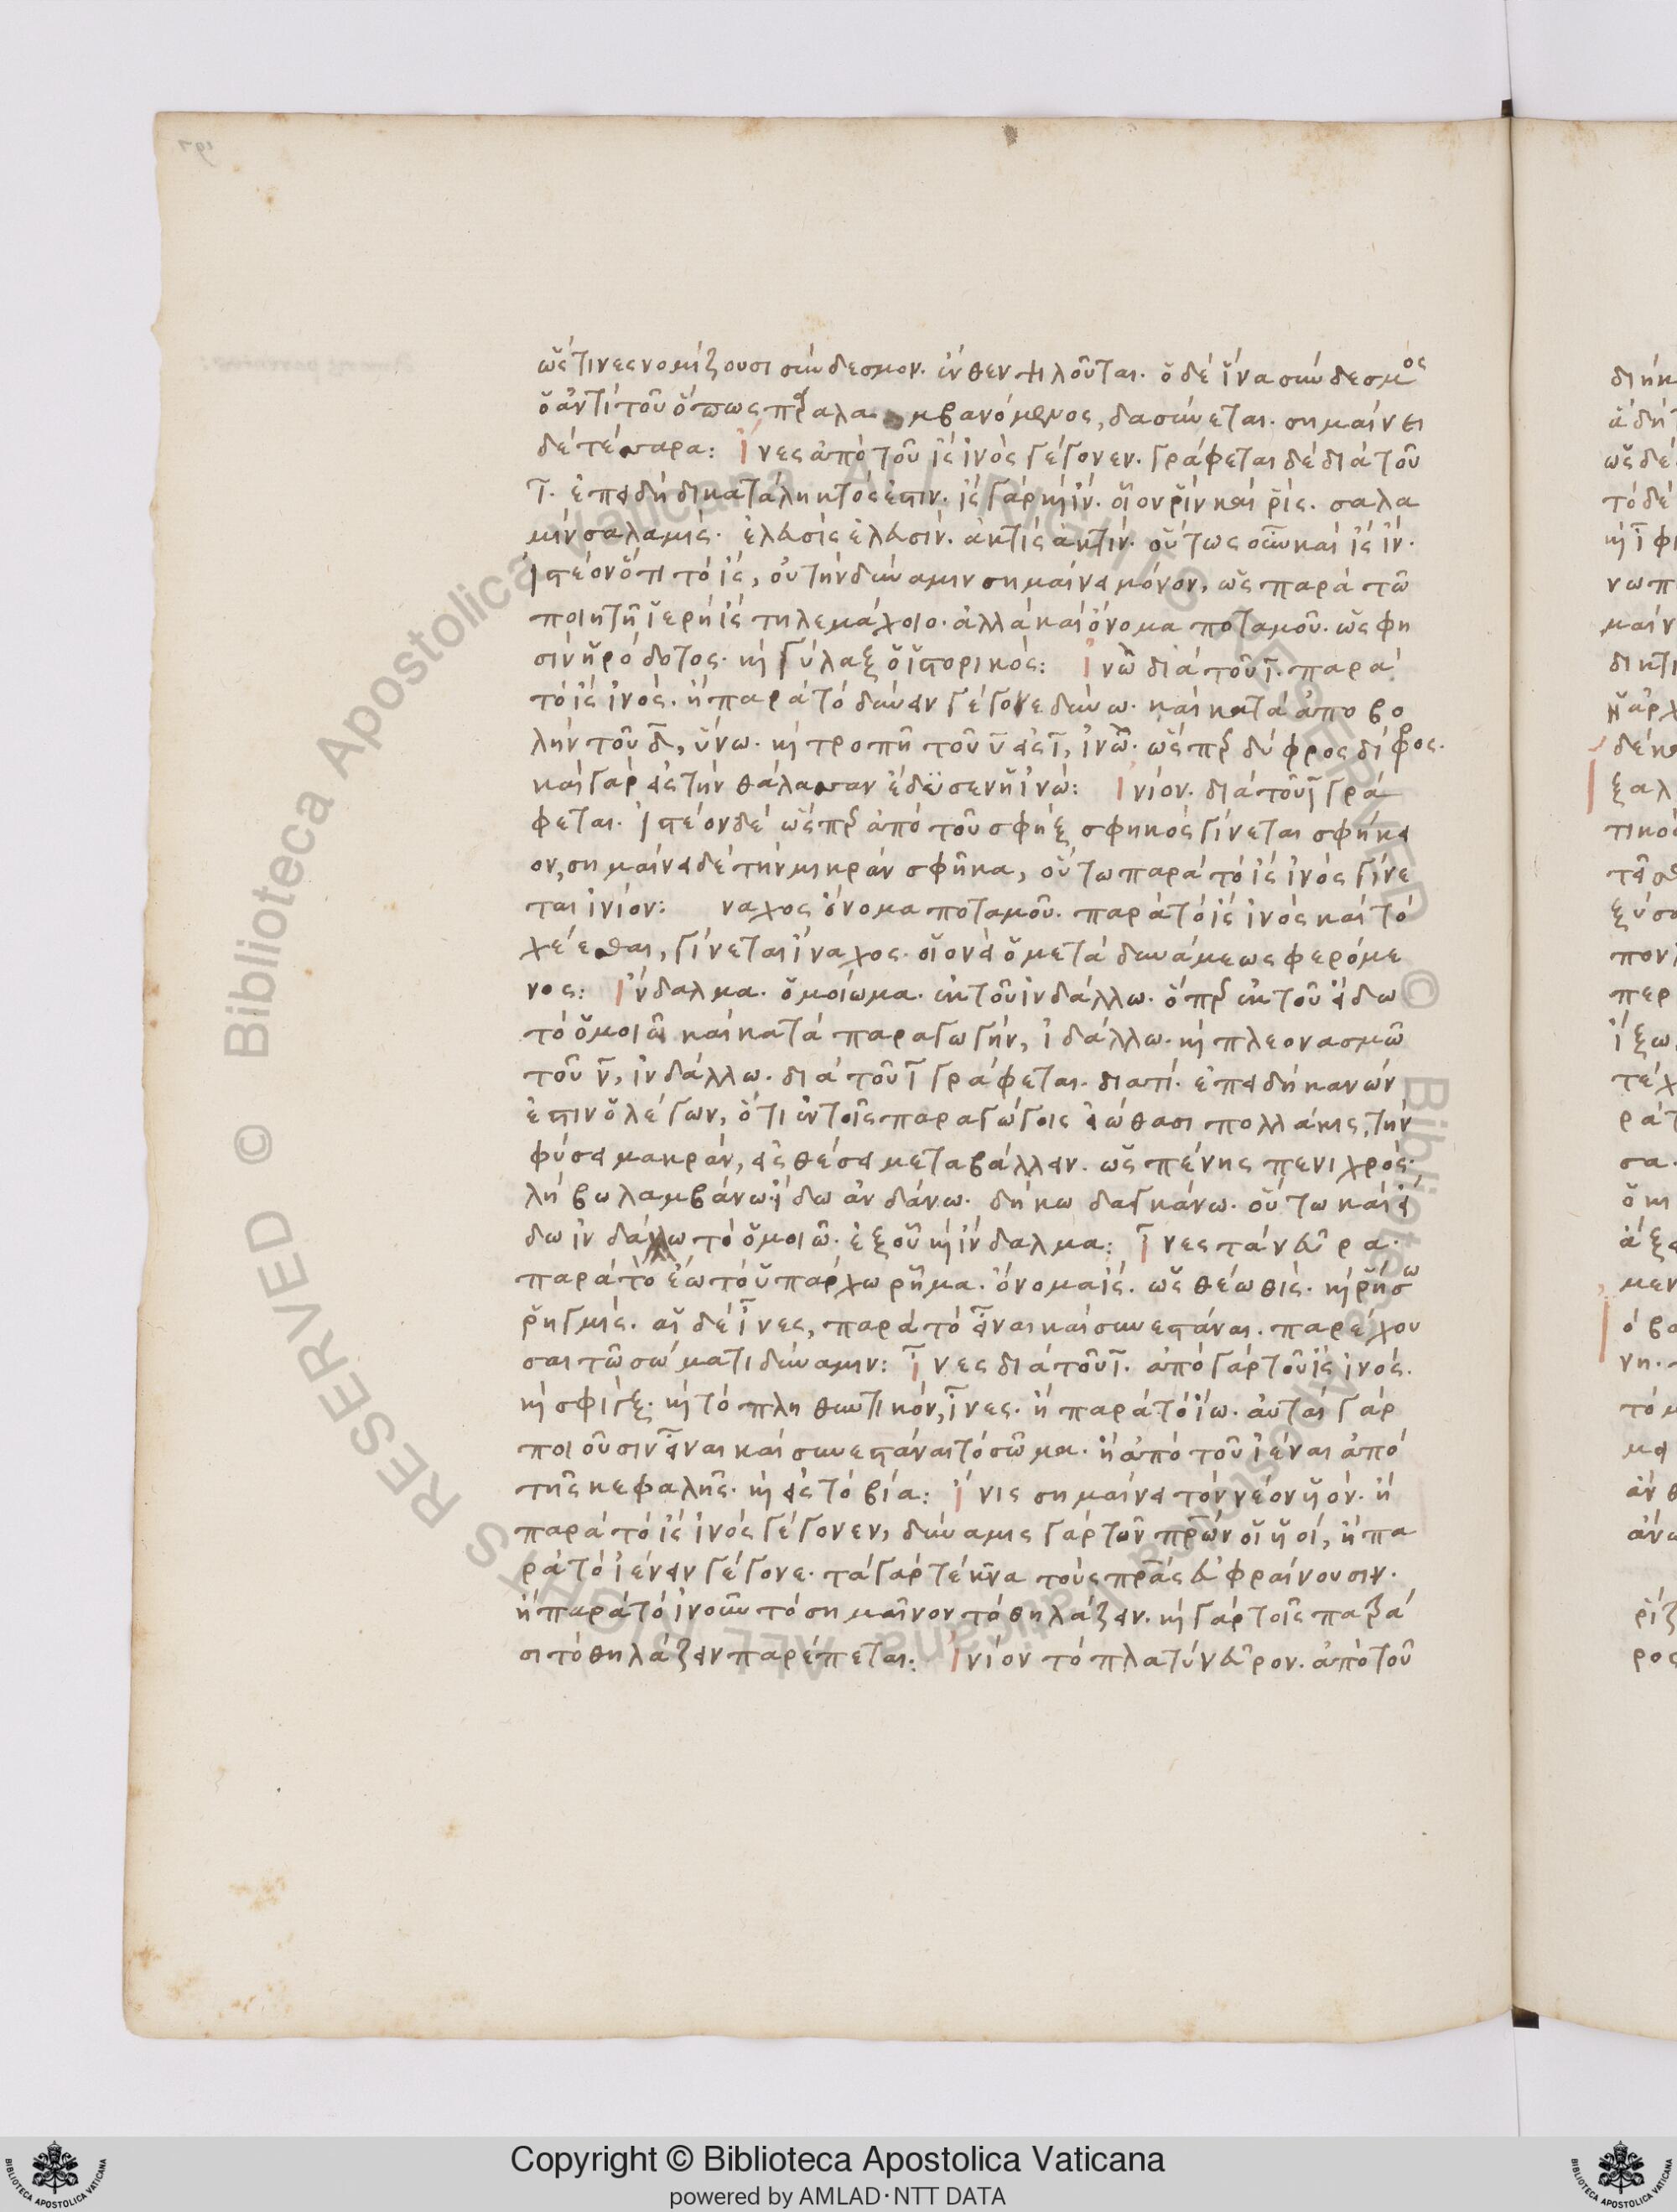 ὥς τινες νομίζουσι σύνδεσμον. ἔνθεν ψιλοῦται. ὁ δὲ ἵνα σύνδεσμος
ὁ ἀντὶ τοῦ ὅπως παραλαμβανόμενος, δασύνεται. σημαίνει
δὲ τέσσαρα: Ἶνες ἀπὸ τοῦ ἲς ἰνὸς γέγονεν. γράφεται δὲ διὰ τοῦ
ῑ. ἐπειδὴ δικατάληκτός ἐστιν. ἲς γὰρ καὶ ἲν. οἷον ῥὶν καὶ ῥίς. σαλα
μὶν σαλαμίς. ἐλευσὶς ἐλευσίν. ἀκτὶς ἀκτίν. οὕτως οὖν καὶ ἲς ἲν.
Ἰστέον ὅτι τὸ ἲς, οὐ τὴν δύναμιν σημαίνει μόνον, ὡς παρὰ τῶ
ποιητῆ ἱερὴ ἲς τηλεμάχοιο. ἀλλὰ καὶ ὄνομα ποταμοῦ. ὥς φη
σὶν ἡρόδοτος. καὶ γύλαξ ὁ ἱστορικός: Ἰνὼ διὰ τοῦ ῑ. παρὰ
τὸ ἲς ἰνός. ἢ παρὰ τὸ δύνειν γέγονε δύνω. καὶ κατὰ ἀποβο
λὴν τοῦ δ, ὕνω. καὶ τροπῆ τοῦ ῡ εἰς ῑ, ἰνῶ. ὥσπερ δύφρος δίφρος.
καὶ γὰρ εἰς τὴν θάλασσαν ἔδυσεν ἡ ἰνώ: Ἰνίον. διὰ τοῦ ῑ γρά
φεται. Ἰστέον δὲ ὥσπερ ἀπὸ τοῦ σφὴξ σφηκὸς γίνεται σφήκει
ον, σημαίνει δὲ τὴν μικρὰν σφῆκα, οὕτω παρὰ τὸ ἲς ἰνὸς γίνε
ται ἰνίον: ναχος ὄνομα ποταμοῦ. παρὰ τὸ ἲς ἰνὸς καὶ τὸ
χέεσθαι, γίνεται ἴναχος. οἱονεὶ ὁ μετὰ δυνάμεως φερόμε
νος: Ἴνδαλμα. ὁμοίωμα. ἐκ τοῦ ἰνδάλλω. ὅπερ ἐκ τοῦ εἴδω
τὸ ὁμοιῶ καὶ κατὰ παραγωγὴν, ἰδάλλω. καὶ πλεονασμῶ
τοῦ ν̄, ἰνδάλλω. διὰ τοῦ ῑ γράφεται. διατί. ἐπειδὴ κανών
ἐστιν ὁ λέγων, ὅτι ἐν τοῖς παραγώγοις εἰώθασι πολλάκις, τὴν
φύσει μακρὰν, εἰς θέσει μεταβάλλειν. ὡς πένης πενιχρός.
λήβω λαμβάνω. ἥδω ἁνδάνω. δήκω δαγκάνω. οὕτω καὶ εἴ
δω ἰνδάλλω τὸ ὁμοιῶ. ἐξ οὗ καὶ ἴνδαλμα: Ἶνες τὰ νεῦρα.
παρὰ τὸ ἔω τὸ ὑπάρχω ῥῆμα. ὄνομα ἴς. ὡς θέω θίς. καὶ ῥήσσω
ῥηγμίς. αἱ δὲ ἶνες, παρὰ τὸ εἶναι καὶ συνεστάναι. παρέχου
σαι τῶ σώματι δύναμιν: Ἶνες διὰ τοῦ ῑ. ἀπὸ γὰρ τοῦ ἲς ἰνός.
καὶ σφίγξ. καὶ τὸ πληθυντικὸν, ἶνες. ἢ παρὰ τὸ ἴω. αὗται γὰρ
ποιοῦσιν εἶναι καὶ συνεστάναι τὸ σῶμα. ἢ ἀπὸ τοῦ ἰέναι ἀπὸ
τῆς κεφαλῆς. καὶ εἰς τὸ βία: Ἴνις σημαίνει τὸν νέον υἱόν. ἢ
παρὰ τὸ ἲς ἰνὸς γέγονεν, δύναμις γὰρ τῶν πρων οἱ υἱοί, ἢ πα
ρὰ τὸ ἰένειν γέγονε. τὰ γὰρ τέκνα τοὺς πρας εὐφραίνουσιν.
ἢ παρὰ τὸ ἰνοῦν τὸ σημαῖνον τὸ θηλάζειν. καὶ γὰρ τοῖς
σι τὸ θηλάζειν παρέπεται: Ἰνίον τὸ πλατὺ νεῦρον. ἀπὸ τοῦ
Copyright © Biblioteca Apostolica Vaticana
powered by AMLAD·NTT DATA